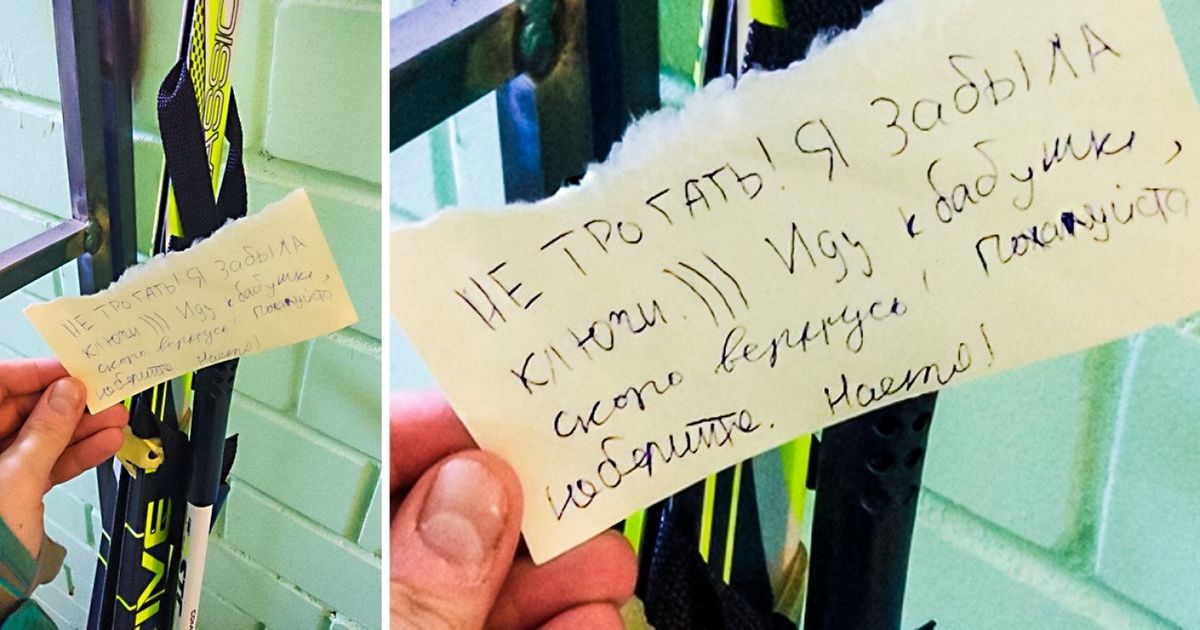 ASSIC
НЕ ТРОГАТЬ! Я ЗабЫЛА
ключи.))) Иду к бабушке,
скоро вернусь, пожалуйста
не берите. Настя!
НЕ ТРОГАТЬ! Я ЗабЫЛА
ключи.))) Иду к бабушке,
скоро вернусь, пожалуйста
не берите. Настя!